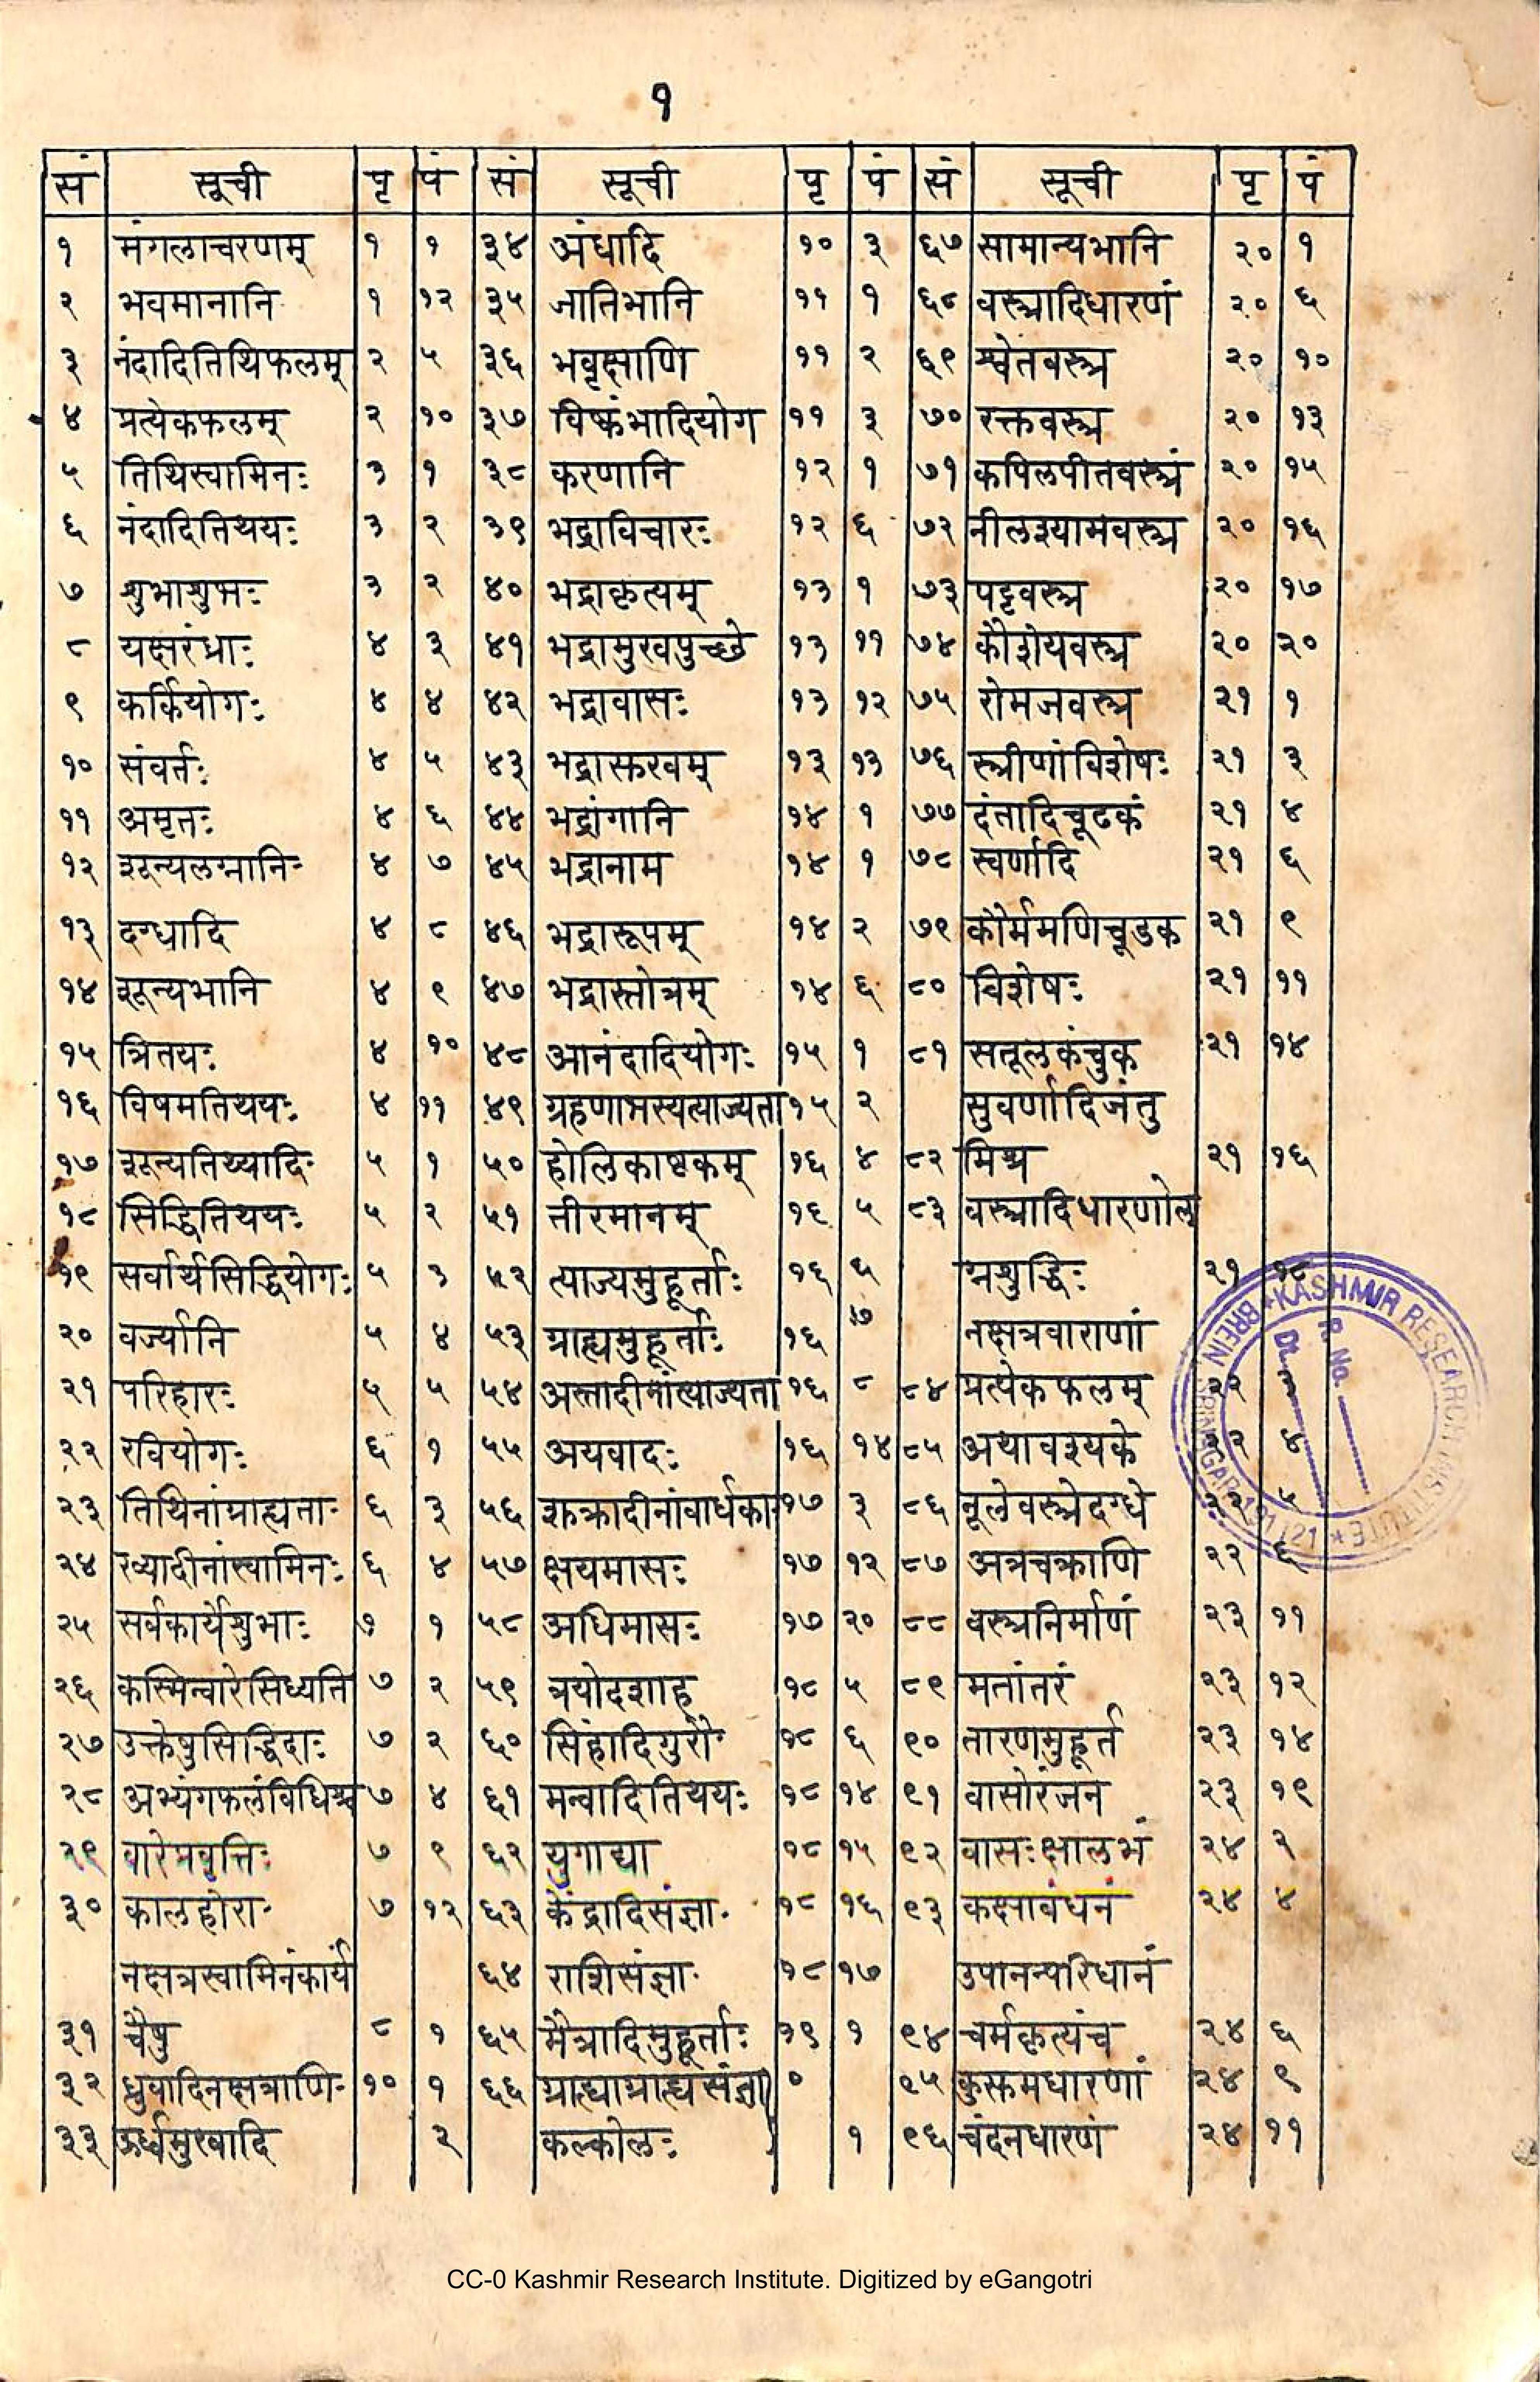 १
सं सूची पृ पं सं सूची पृ पं सं सूची पृ पं
१ मंगलाचरणम् १ १ ३४ अंधादि १० ३ ६७ सामान्यभानि २० १
२ भवमानानि १ १२ ३५ जातिभानि ११ १ ६८ वस्त्रादिधारणं २० ६
३ नंदादितिथिफलम् २ ५ ३६ भवृक्षाणि ११ २ ६९ श्वेतवस्त्र २० १०
४ प्रत्येकफलम् २ १० ३७ विष्कंभादियोग ११ ३ ७० रक्तवस्त्र २० १३
५ तिथिस्वामिनः ३ १ ३८ करणानि १२ १ ७१ कपिलपीतवस्त्रं २० १५
६ नंदादितिथयः ३ २ ३९ भद्राविचारः १२ ६ ७२ नीलश्यामवस्त्र २० १६
७ शुभाशुभः ३ २ ४० भद्राकृत्यम् १३ १ ७३ पट्टवस्त्र २० १७
८ पक्षरंध्राः ४ ३ ४१ भद्रामुखपुच्छे १३ ११ ७४ कौशेयवस्त्र २० २०
९ कर्कियोगः ४ ४ ४२ भद्रावासः १३ १२ ७५ रोमजवस्त्र २१ १
१० संवर्तः ४ ५ ४३ १३ १३ ७६ स्त्रीणांविशेषः २१ ३
११ अमृतः ४ ६ ४४ भद्रांगानि १४ १ ७७ दंतादिचूटकं २१ ४
१२ शून्यलग्नानिः ४ ७ ४५ भद्रानाम १४ १ ७८ स्वर्णादि २१ ६
१३ दग्धादि ४ ८ ४६ भद्रारूपम् १४ २ ७९ कौर्ममणिचूडक २१ ९
१४ शून्यभानि ४ ९ ४७ भद्रास्तोत्रम् १४ ६ ८० विशेषः २१ ११
१५ त्रितयः ४ १० ४८ आनंदादियोगः १५ १ ८१ सतूलकंचुक २१ १४
१६ विषमतिथयः ४ ११ ४९ ग्रहणाभस्यत्याज्यता १५ २ सुवर्णादिजंतु
१७ शून्यतिथ्यादिः ५ १ ५० होलिकाष्टकम् १६ ४ ८२ मिश्र २१ १६
१८ सिद्धितिथयः ५ २ ५१ तीरमानम् १६ ५ ८३ वस्त्रादिधारणेल
१९ सर्वार्थसिद्धियोगः ५ ३ ५२ त्याज्यमुहूर्ताः १६ ६ ग्नशुद्धिः २१ १८
२० वर्ज्यानि ५ ४ ५३ ग्राह्यमुहूर्ताः १६ ७ नक्षत्रवाराणां
२१ परिहारः ५ ५ ५४ अस्तादीनांत्याज्यता १६ ८ ८४ प्रत्येकफलम् २२ ३
२२ रवियोगः ६ १ ५५ अपवादः १६ १४ ८५ अथावश्यके २२ ४
२३ तिथिनांग्राह्यताः ६ ३ ५६ शुक्रादीनांवार्धका १७ ३ ८६ नूलेवस्त्रेदग्धे २२ ५
२४ रव्यादीनांस्वामिनः ६ ४ ५७ क्षयमासः १७ १२ ८७ अत्रचक्राणि २२ ६
२५ सर्वकार्येशुभाः ७ १ ५८ अधिमासः १७ २० ८८ वस्त्रनिर्माणं २३ ११
२६ कस्मिन्वारेसिध्यति ७ २ ५९ त्रयोदशाह १८ ५ ८९ मतांतरं २३ १२
२७ उक्तेषुसिद्धिदाः ७ २ ६० सिंहादिगुरौः १८ ६ ९० तारणमुहूर्त २३ १४
२८ अभ्यंगफलंविधिश्च ७ ४ ६१ मन्वादितिथयः १८ १४ ९१ वासोरंजन २३ १९
२९ वारेप्रवृत्तिः ७ ९ ६२ युगाद्या १८ १५ ९२ वासःक्षालभं २४ २
३० कालहोराः ७ १२ ६३ केंद्रादिसंज्ञा १८ १६ ९३ कक्षाबंधनं २४ ४
नक्षत्रस्वामिनंकार्यं ६४ राशिसंज्ञा १८ १७ उपानत्परिधानं
३१ चैषु ८ १ ६५ मैत्रादिमुहूर्ताः १९ १ ९४ चर्मकृत्यंच २४ ६
३२ ध्रुवादिनक्षत्राणि १० १ ६६ ग्राह्याग्राह्यसंज्ञा ० ९५ २४ ९
३३ ऊर्ध्वमुखादि २ कल्कोलः १ ९६ चंदनधारणं २४ ११
KASHMIR RESEARCH INSTITUTE * BREIN SRINAGAR-191121 *
P. No.
Dt.
CC-0 Kashmir Research Institute. Digitized by eGangotri